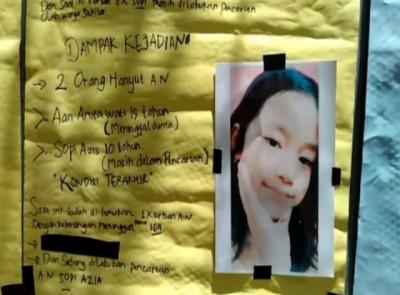 Dan Saat ini korban a.n Sopi Masih di Lakukan Pencarian
oleh warga Sekitar
DAMPAK KEJADIAN
→ 2 Orang Hanyut A.N
> Aan Anisa wati 15 tahun
(Meninggal dunia)
> Sopi Azis 10 tahun
(Masih dalam Pencarian)
"KONDISI TERAKHIR"
Saat ini sudah di temukan 1 korban A.N
Dengan keterangan Meninggal
→ Dan Sedang di lakukan pencarian
A.N SOPI AZIA